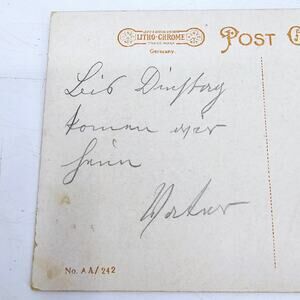 LITHO-CHROME
TRADE MARK
Germany.
POST
Bis Dinstag
komen wir
heim
No. AA/242